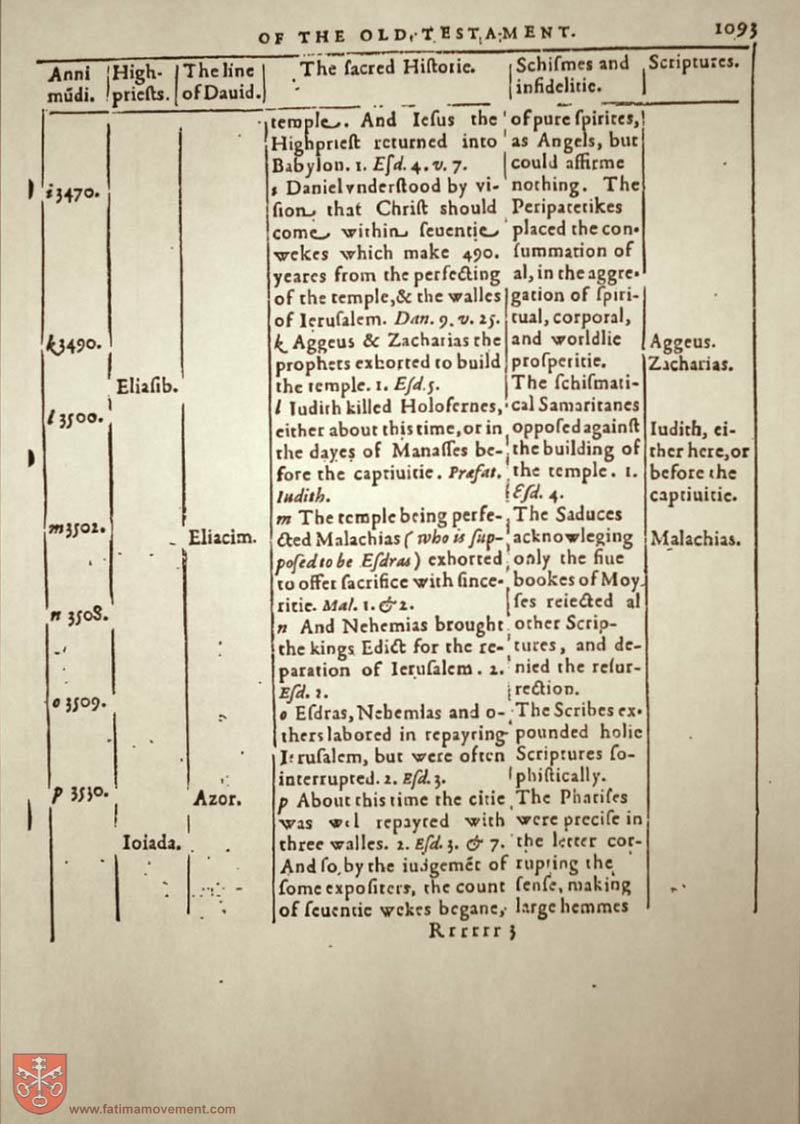 OF THE OLD TESTAMENT.
1093
Anni
mūdi.
High-
prieſts.
The line
of Dauid.
The ſacred Hiſtorie.
Schiſmes and
infidelitie.
Scriptures.
i 3470.
k 3490.
l 3500.
m 3502.
n 3508.
o 3509.
p 3530.
Eliaſib.
Ioiada.
Eliacim.
Azor.
temple. And Ieſus the
Highprieſt returned into
Babylon. 1. Eſd. 4. v. 7.
Daniel vnderſtood by vi-
ſion that Chriſt should
come within ſeuentie
wekes which make 490.
yeares from the perfecting
of the temple, & the walles
of Ieruſalem. Dan. 9. v. 25.
k Aggeus & Zacharias the
prophets exhorted to build
the temple. 1. Eſd. 5.
l Iudith killed Holofernes,
either about this time, or in
the dayes of Manaſſes be-
fore the captiuitie. Præfat.
Iudith.
m The temple being perfe-
cted Malachias (who is ſup-
poſed to be Eſdras) exhorted
to offer ſacrifice with ſince-
ritie. Mal. 1. & 2.
n And Nehemias brought
the kings Edict for the re-
paration of Ieruſalem. 2.
Eſd. 2.
o Eſdras, Nehemias and o-
thers labored in repayring
Ieruſalem, but were often
interrupted. 2. Eſd. 3.
p About this time the citie
was wel repayred with
three walles. 2. Eſd. 3. & 7.
And ſo, by the iudgemēt of
ſome expoſiters, the count
of ſeuentie wekes begane,
of pure ſpirites,
as Angels, but
could affirme
nothing. The
Peripatetikes
placed the con-
ſummation of
al, in the aggre-
gation of ſpiri-
tual, corporal,
and worldlie
proſperitie.
The ſchiſmati-
cal Samaritanes
oppoſed againſt
the building of
the temple. 1.
Eſd. 4.
The Saduces
acknowleging
only the fiue
bookes of Moy
ſes reiected al
other Scrip-
tures, and de-
nied the reſur-
rection.
The Scribes ex-
pounded holie
Scriptures ſo-
phiſtically.
The Phariſes
were preciſe in
the letter cor-
rupting the
ſenſe, making
large hemmes
Aggeus.
Zacharias.
Iudith, ei-
ther here, or
before the
captiuitie.
Malachias.
Rrrrrr 3
www.fatimamovement.com